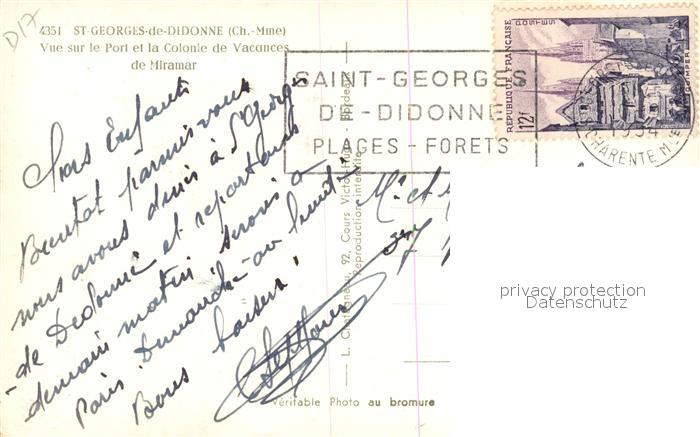 D17
4351 ST-GEORGES-de-DIDONNE (Ch.-Mme)
Vue sur le Port et la Colonie de Vacances
de Miramar
SAINT-GEORGES
DE-DIDONNE
PLAGES - FORETS
REPUBLIQUE FRANÇAISE
POSTES
12F
QUIMPER
1954
CHARENTE MME
Enfants
Bientot parmis vous
nous avons diné à St Georges
de Didonne et repartons
demain matin serons à
Paris Dimanche au
Bons baisers
L. Chatagneau, 92, Cours Victor Hugo - Bordeaux
Reproduction interdite
Véritable Photo au bromure
privacy protection
Datenschutz